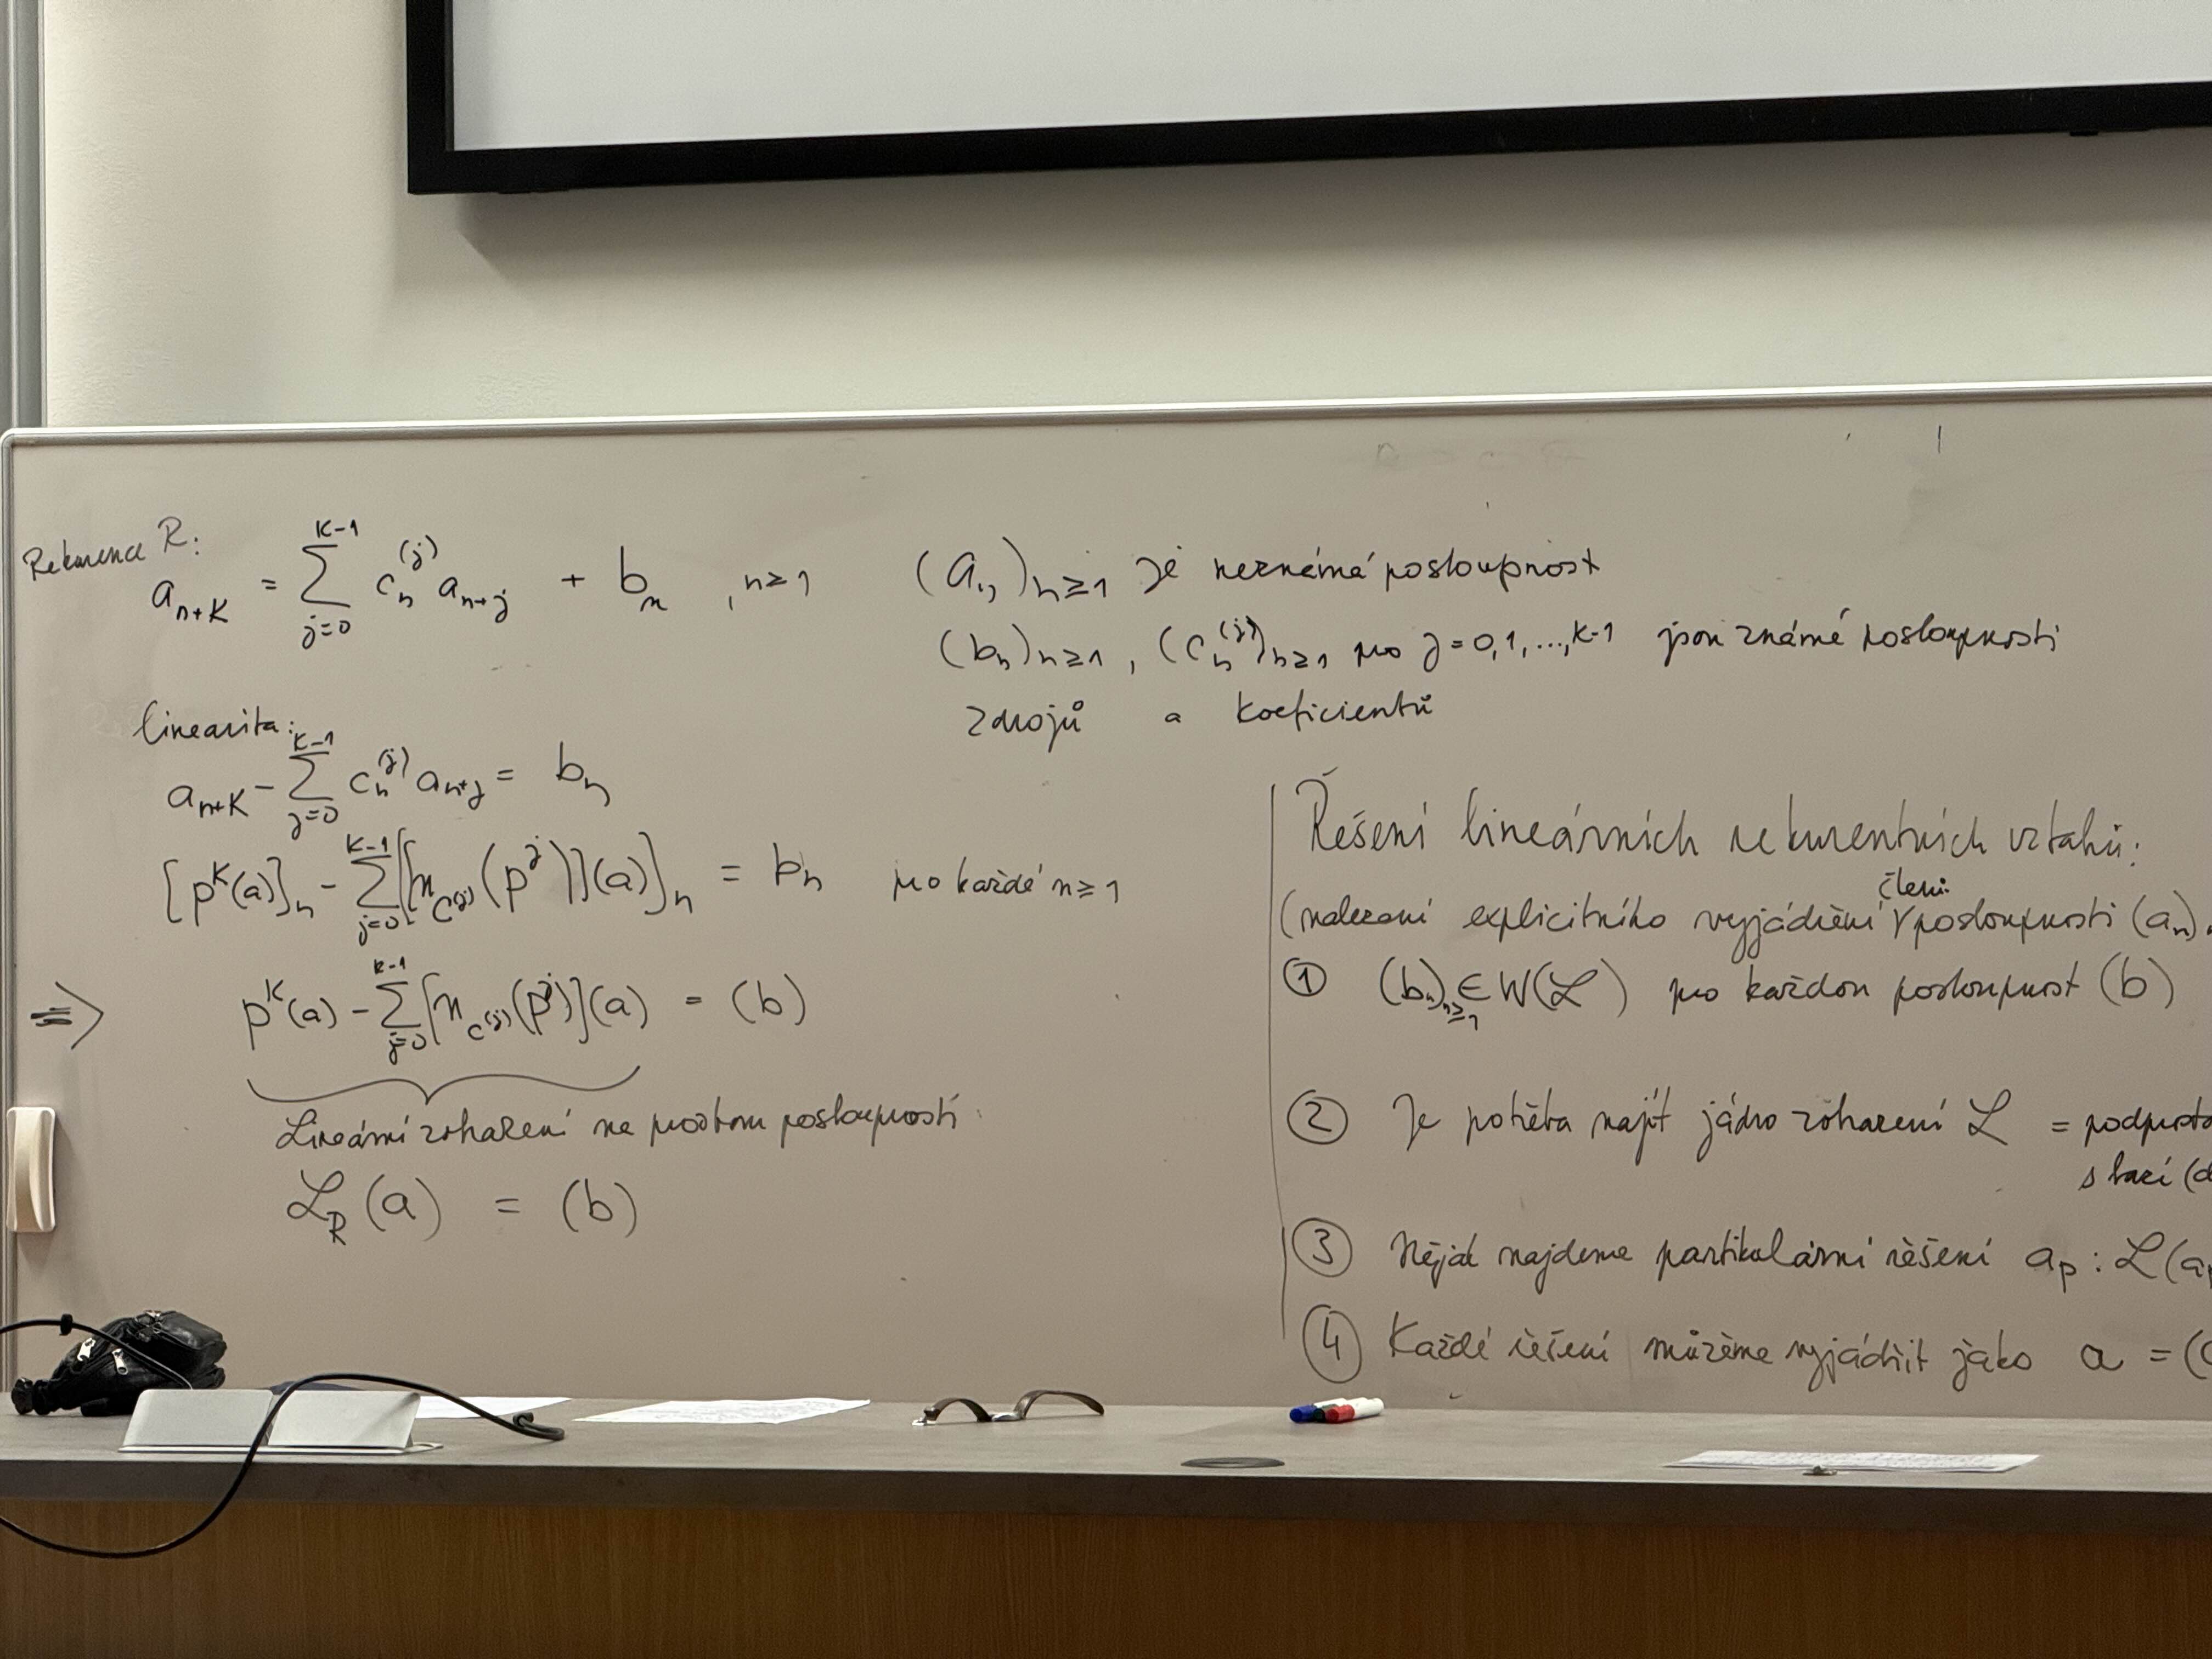 Rekurence R:
a_{n+K} = \sum_{j=0}^{K-1} c_n^{(j)} a_{n+j} + b_n , n≥1
(a_n)_{n≥1} je neznámá posloupnost
(b_n)_{n≥1}, (c_n^{(j)})_{n≥1} pro j=0,1,...,K-1 jsou známé posloupnosti
zdrojů a koeficientů
linearita:
a_{n+K} - \sum_{j=0}^{K-1} c_n^{(j)} a_{n+j} = b_n
[p^K(a)]_n - \sum_{j=0}^{K-1} [[n_{c^{(j)}}(p^j)](a)]_n = b_n pro každé n≥1
⇒ p^K(a) - \sum_{j=0}^{K-1} [n_{c^{(j)}}(p^j)](a) = (b)
Lineární zobrazení na prostoru posloupností
ℒ_R(a) = (b)
Řešení lineárních rekurentních vztahů:
(nalezení explicitního vyjádření členů posloupnosti (a_n)
① (b_n)_{n≥1} ∈ W(ℒ) pro každou posloupnost (b)
② Je potřeba najít jádro zobrazení ℒ =
③ Nějak najdeme partikulární řešení a_p : ℒ(a_p
④ Každé řešení můžeme vyjádřit jako a = (